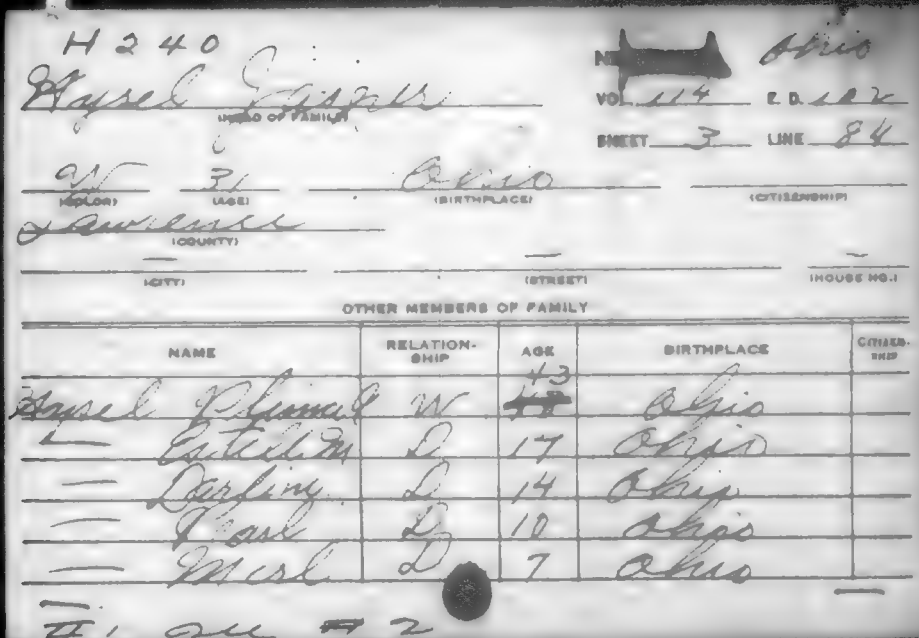 H 240
Ohio
Haysel
(HEAD OF FAMILY)
VOL. 114 E.D. 102
SHEET 3 LINE 84
W 31 Ohio
(COLOR) (AGE) (BIRTHPLACE) (CITIZENSHIP)
Lawrence
(COUNTY)
— — —
(CITY) (STREET) (HOUSE NO.)
OTHER MEMBERS OF FAMILY
NAME RELATION-SHIP AGE BIRTHPLACE CITIZEN-SHIP
43
Haysel W Ohio
— D 17 Ohio
— Darling D 14 Ohio
— Pearl D 10 Ohio
— Merl D 7 Ohio
#1 #2